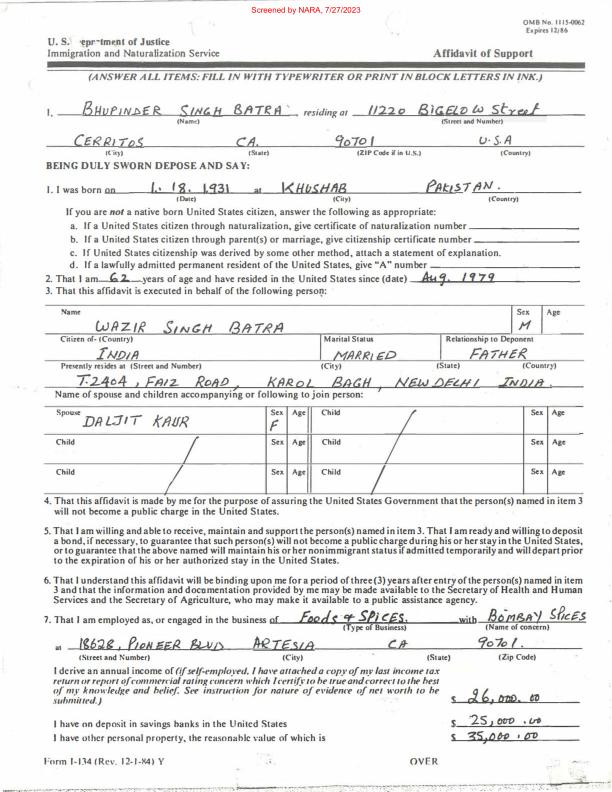 Screened by NARA, 7/27/2023
OMB No. 1115-0062
Expires 12/86
U. S. epartment of Justice
Immigration and Naturalization Service Affidavit of Support
(ANSWER ALL ITEMS: FILL IN WITH TYPEWRITER OR PRINT IN BLOCK LETTERS IN INK.)
1. BHUPINDER SINGH BATRA residing at 11220 BIGELOW Street
(Name) (Street and Number)
CERRITOS CA. 90701 U.S.A
(City) (State) (ZIP Code if in U.S.) (Country)
BEING DULY SWORN DEPOSE AND SAY:
1. I was born on 1. 18. 1931 at KHUSHAB PAKISTAN.
(Date) (City) (Country)
If you are not a native born United States citizen, answer the following as appropriate:
a. If a United States citizen through naturalization, give certificate of naturalization number
b. If a United States citizen through parent(s) or marriage, give citizenship certificate number
c. If United States citizenship was derived by some other method, attach a statement of explanation.
d. If a lawfully admitted permanent resident of the United States, give "A" number
2. That I am 62 years of age and have resided in the United States since (date) Aug. 1979
3. That this affidavit is executed in behalf of the following person:
Name Sex Age
WAZIR SINGH BATRA M
Citizen of- (Country) Marital Status Relationship to Deponent
INDIA MARRIED FATHER
Presently resides at (Street and Number) (City) (State) (Country)
T-2404, FAIZ ROAD, KAROL BAGH, NEW DELHI INDIA.
Name of spouse and children accompanying or following to join person:
Spouse Sex Age Child Sex Age
DALJIT KAUR F
Child Sex Age Child Sex Age
Child Sex Age Child Sex Age
4. That this affidavit is made by me for the purpose of assuring the United States Government that the person(s) named in item 3
will not become a public charge in the United States.
5. That I am willing and able to receive, maintain and support the person(s) named in item 3. That I am ready and willing to deposit
a bond, if necessary, to guarantee that such person(s) will not become a public charge during his or her stay in the United States,
or to guarantee that the above named will maintain his or her nonimmigrant status if admitted temporarily and will depart prior
to the expiration of his or her authorized stay in the United States.
6. That I understand this affidavit will be binding upon me for a period of three (3) years after entry of the person(s) named in item
3 and that the information and documentation provided by me may be made available to the Secretary of Health and Human
Services and the Secretary of Agriculture, who may make it available to a public assistance agency.
7. That I am employed as, or engaged in the business of Foods & SPICES. with BOMBAY SPICES
(Type of Business) (Name of concern)
at 18628, PIONEER BLVD ARTESIA CA 90701.
(Street and Number) (City) (State) (Zip Code)
I derive an annual income of (if self-employed, I have attached a copy of my last income tax
return or report of commercial rating concern which I certify to be true and correct to the best
of my knowledge and belief. See instruction for nature of evidence of net worth to be
submitted.) $ 26,000.00
I have on deposit in savings banks in the United States $ 25,000.00
I have other personal property, the reasonable value of which is $ 35,000.00
Form I-134 (Rev. 12-1-84) Y OVER